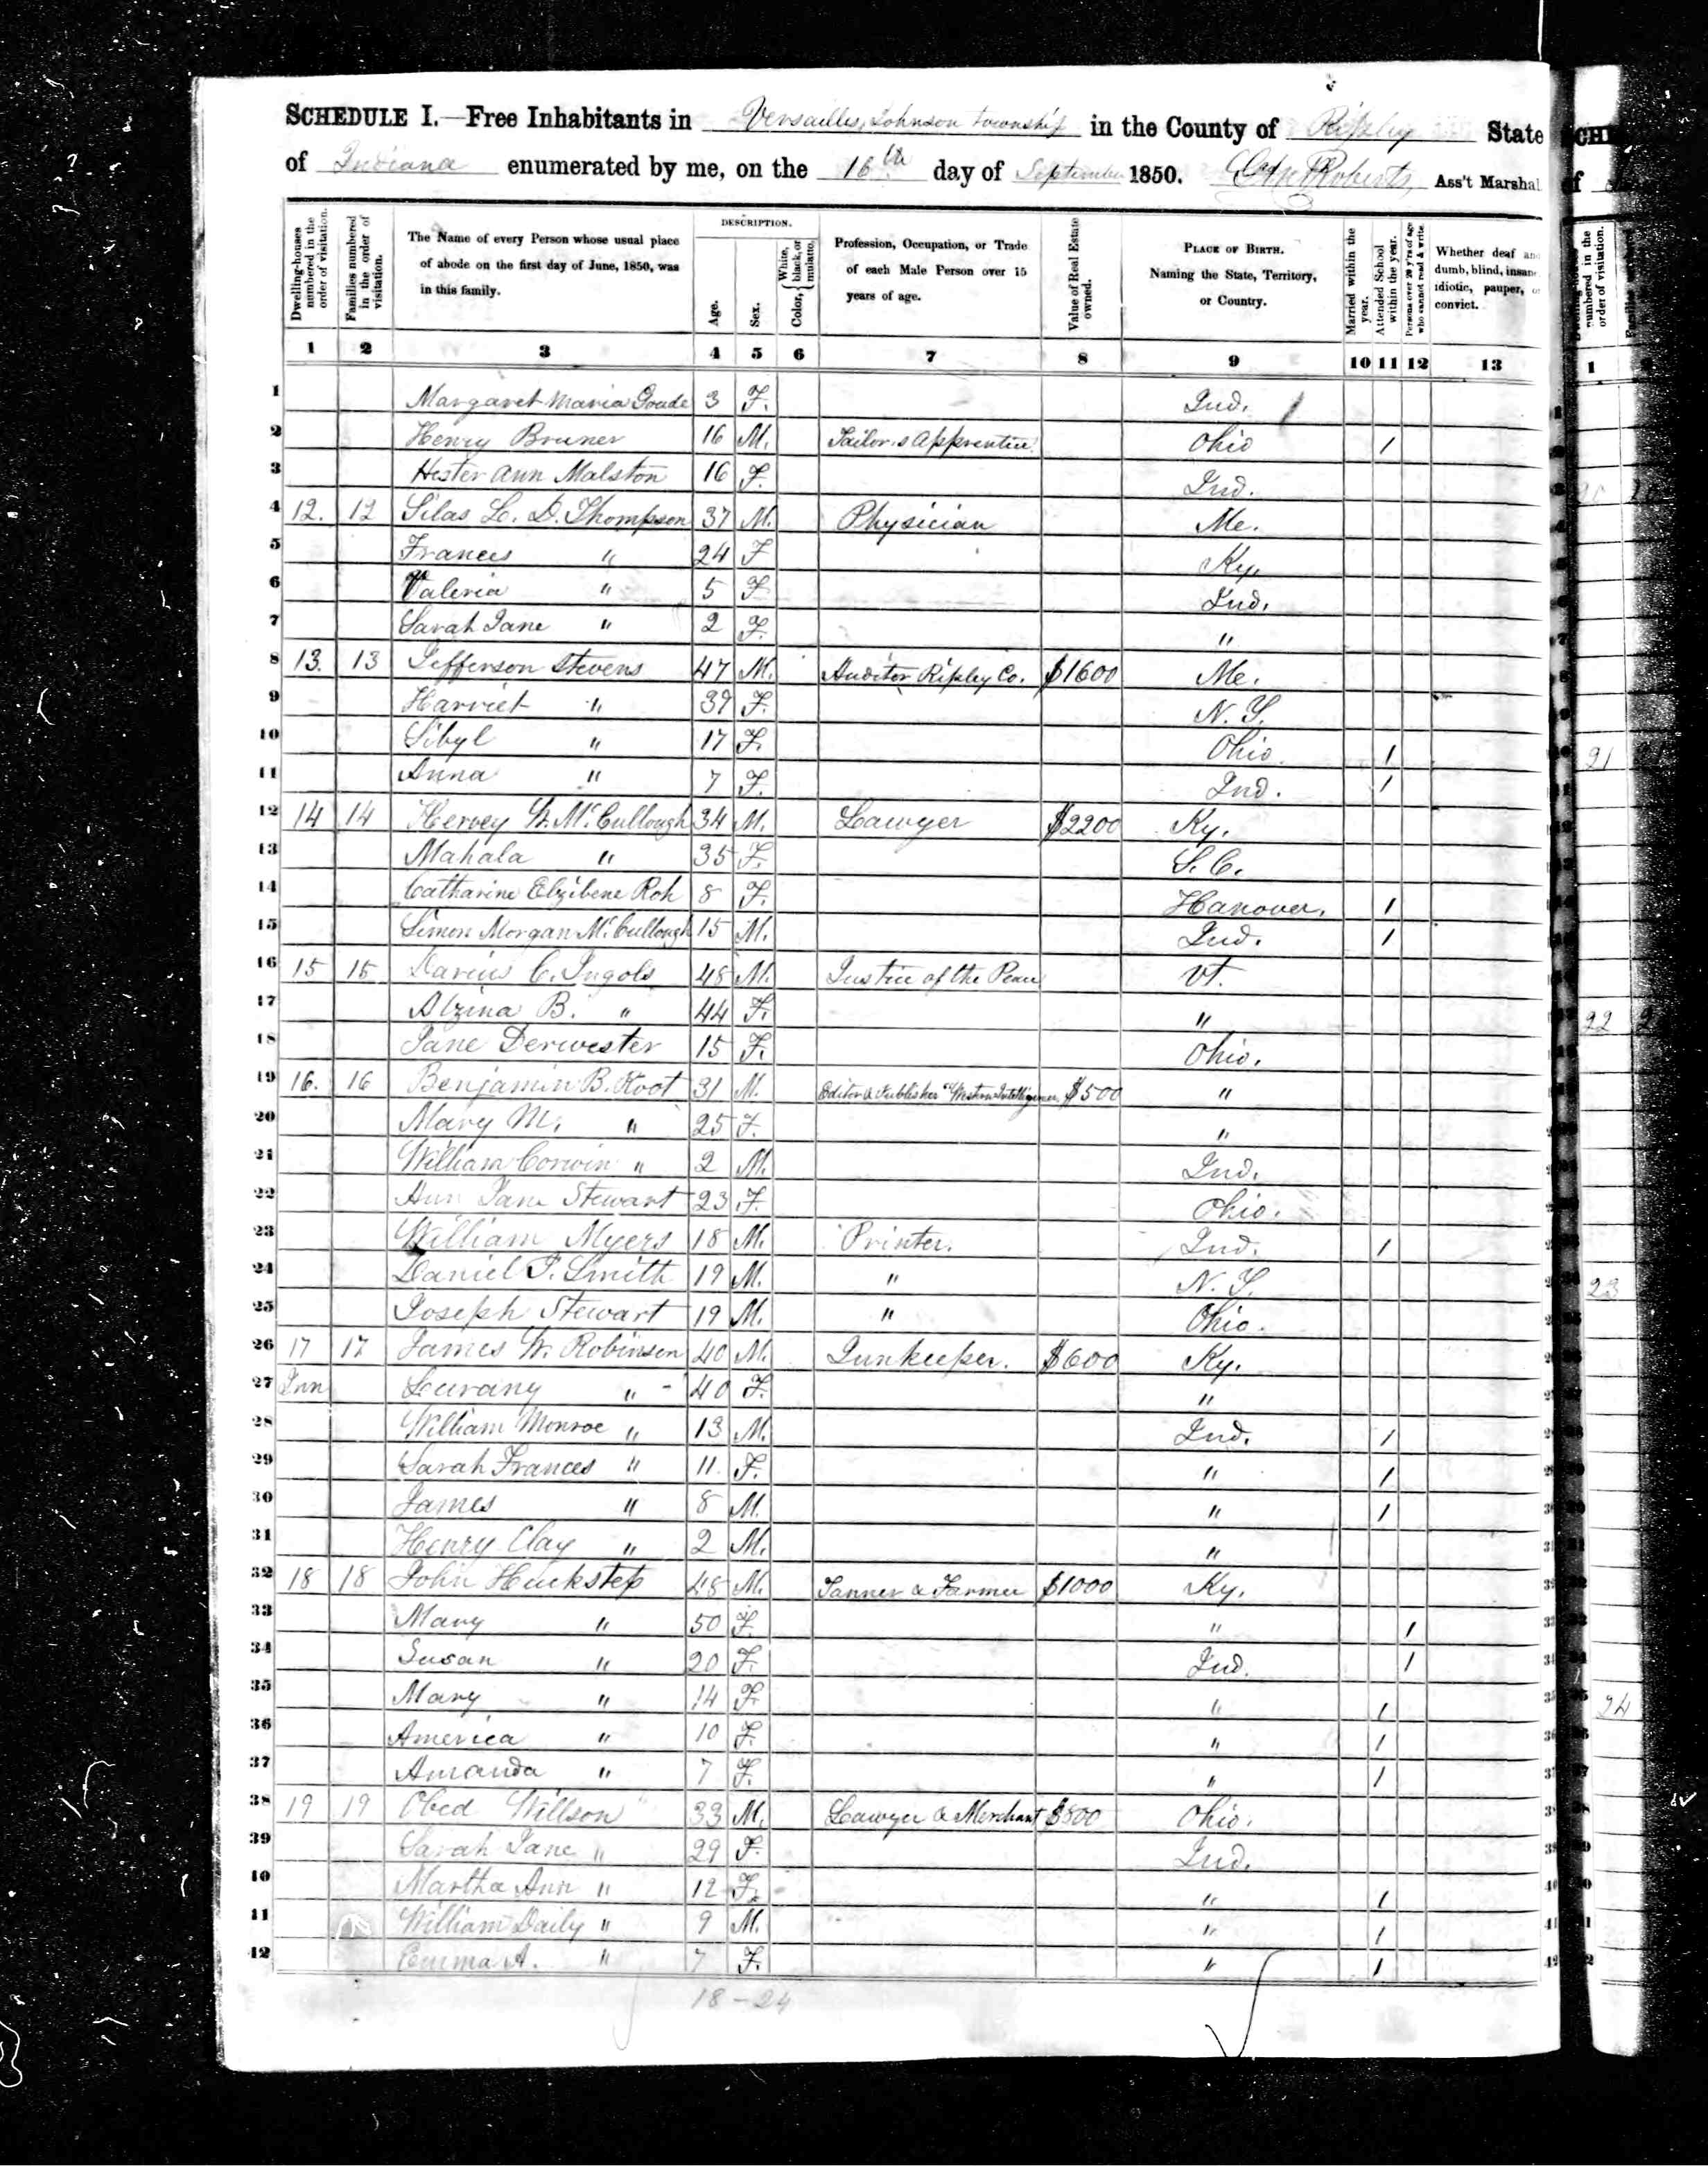 SCHEDULE I.—Free Inhabitants in Versailles, Johnson Township in the County of Ripley State
of Indiana enumerated by me, on the 16th day of September 1850. Roberts Ass't Marshal
Dwelling-houses numbered in the order of visitation.
Families numbered in the order of visitation.
The Name of every Person whose usual place of abode on the first day of June, 1850, was in this family.
DESCRIPTION.
Age.
Sex.
Color, { White, black, or mulatto.
Profession, Occupation, or Trade of each Male Person over 15 years of age.
Value of Real Estate owned.
PLACE OF BIRTH. Naming the State, Territory, or Country.
Married within the year.
Attended School within the year.
Persons over 20 y'rs of age who cannot read & write.
Whether deaf and dumb, blind, insane, idiotic, pauper, or convict.
1 2 3 4 5 6 7 8 9 10 11 12 13
1 Margaret Maria Goude 3 F. Ind.
2 Henry Bruner 16 M. Tailor's Apprentice Ohio 1
3 Hester Ann Malston 16 F. Ind.
4 12. 12 Silas L. D. Thompson 37 M. Physician Me.
5 Frances " 24 F Ky.
6 Valeria " 5 F Ind.
7 Sarah Jane " 2 F. "
8 13. 13 Jefferson Stevens 47 M. Auditor Ripley Co. $1600 Me.
9 Harriet " 39 F. N. Y.
10 Sibyl " 17 F. Ohio 1
11 Anna " 7 F. Ind. 1
12 14 14 Hervey W. McCullough 34 M. Lawyer $2200 Ky.
13 Mahala " 35 F. S. C.
14 Catharine Elzibene Roh 8 F. Hanover. 1
15 Simon Morgan McCullough 15 M. Ind. 1
16 15 15 Darius C. Ingols 48 M. Justice of the Peace Vt.
17 Alzina B. " 44 F. "
18 Jane Derwester 15 F. Ohio.
19 16. 16 Benjamin B. Root 31 M. Editor & Publisher "Western Intelligencer $500 "
20 Mary M. " 25 F. "
21 William Corwin " 2 M. Ind.
22 Ann Jane Stewart 23 F. Ohio.
23 William Myers 18 M. Printer. Ind. 1
24 Daniel P. Smith 19 M. " N. Y.
25 Joseph Stewart 19 M. " Ohio.
26 17 17 James W. Robinson 40 M. Innkeeper. $600 Ky.
27 Inn Lurany " 40 F. "
28 William Monroe " 13 M. Ind. 1
29 Sarah Frances " 11. F. " 1
30 James " 8 M. " 1
31 Henry Clay " 2 M. "
32 18 18 John Huckstep 48 M. Tanner & Farmer $1000 Ky.
33 Mary " 50 F. " 1
34 Susan " 20 F. Ind. 1
35 Mary " 14 F. " 1
36 America " 10 F. " 1
37 Amanda " 7 F. " 1
38 19 19 Obed Willson 33 M. Lawyer & Merchant $800 Ohio.
39 Sarah Jane " 29 F. Ind.
40 Martha Ann " 12 F. " 1
41 William Daily " 9 M. " 1
42 Emma A. " 7 F. " 1
18-24
21
22
23
24